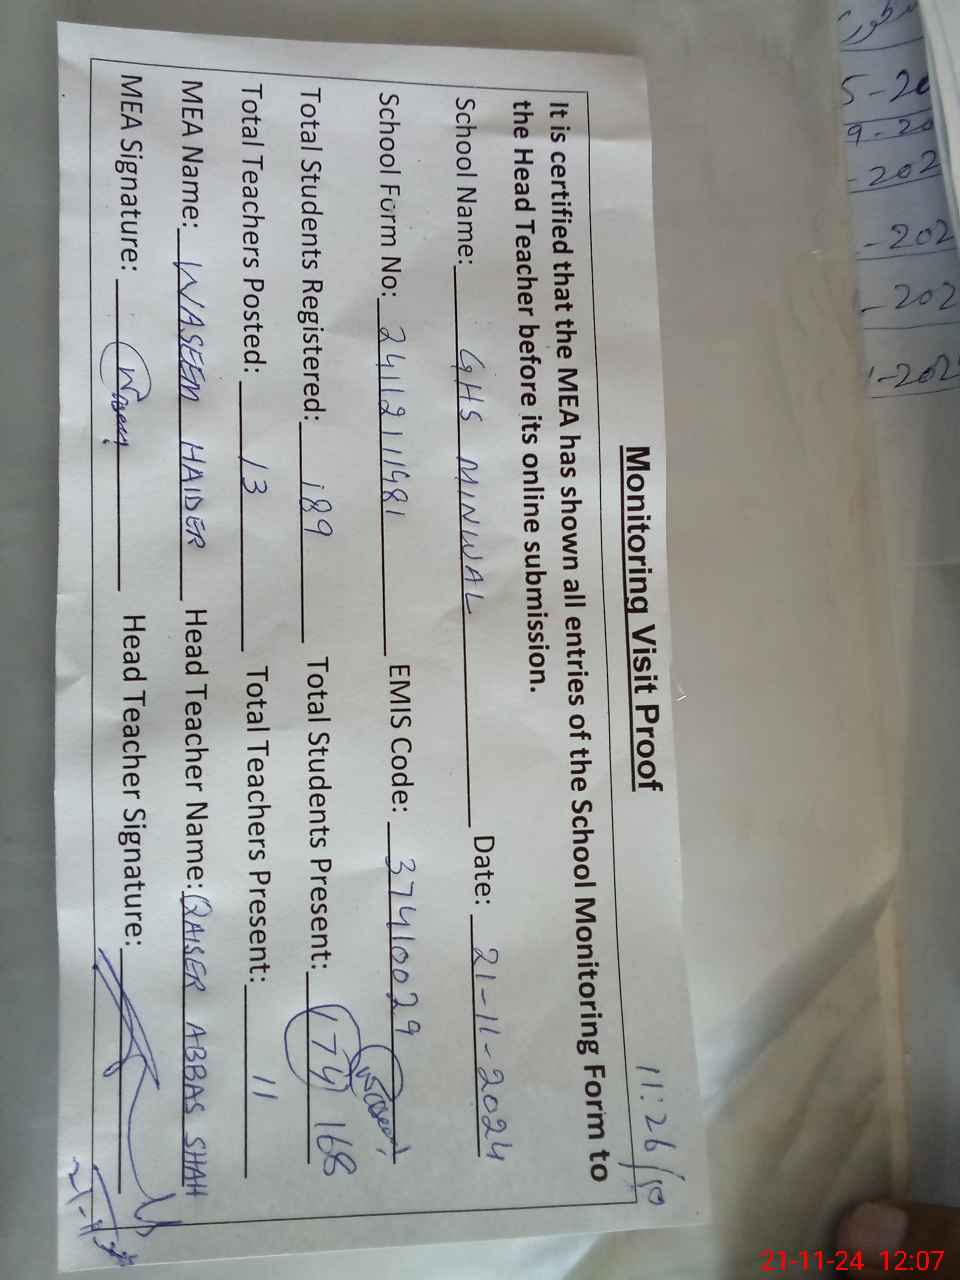 11:26/10
Monitoring Visit Proof
It is certified that the MEA has shown all entries of the School Monitoring Form to
the Head Teacher before its online submission.
School Name: GHS MINWAL Date: 21-11-2024
School Form No: 2411211481 EMIS Code: 37410029
Total Students Registered: 189 Total Students Present: 174 168
Waseem
Total Teachers Posted: 13 Total Teachers Present: 11
MEA Name: WASEEM HAIDER Head Teacher Name: QAISER ABBAS SHAH
MEA Signature: Waseem Head Teacher Signature:
5-20
9-20
-202
-202
-202
1-202
21-11-24 12:07